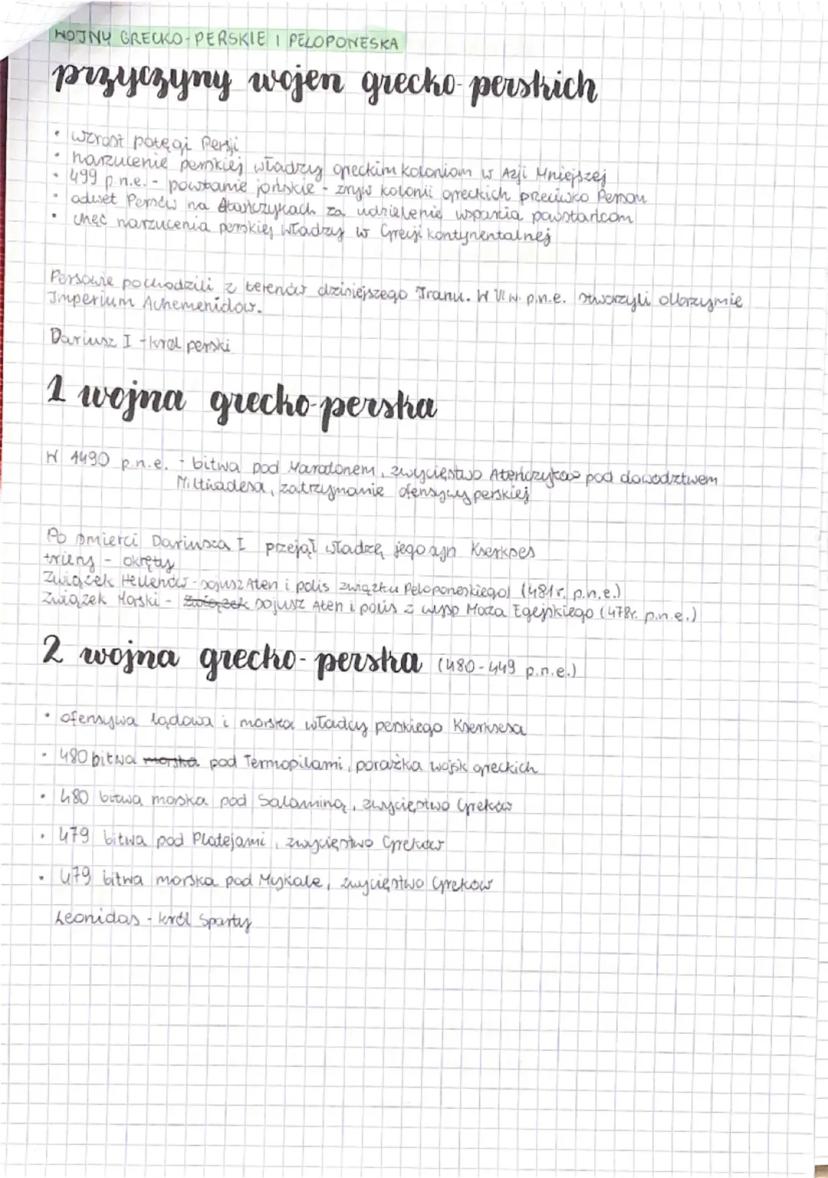 WOJNY GRECKO-PERSKIE I PELOPONESKA
przyczyny wojen grecko-perskich
• wzrost potęgi Persji
• narzucenie perskiej władzy greckim koloniom w Azji Mniejszej
• 499 p.n.e. - powstanie jońskie - zryw kolonii greckich przeciwko Persom
• odwet Persów na Ateńczykach za udzielenie wsparcia powstańcom
• chęć narzucenia perskiej władzy w Grecji kontynentalnej
Persowie pochodzili z terenów dzisiejszego Iranu. W VI w. p.n.e. stworzyli olbrzymie
Imperium Achemenidów.
Dariusz I - król perski
1 wojna grecko-perska
W 1490 p.n.e. - bitwa pod Maratonem, zwycięstwo Ateńczyków pod dowództwem
Miltiadesa, zatrzymanie ofensywy perskiej
Po śmierci Dariusza I przejął władzę jego syn Kserkses
triery - okręty
Związek Hellenów - sojusz Aten i polis związku Peloponeskiego (481r. p.n.e.)
Związek Morski - Związek sojusz Aten i polis z wysp Moża Egejskiego (478r. p.n.e.)
2 wojna grecko-perska (480-449 p.n.e.)
• ofensywa lądowa i morska władcy perskiego Kserksesa
• 480 bitwa morska pod Termopilami, porażka wojsk greckich
• 480 bitwa morska pod Salaminą, zwycięstwo Greków
• 479 bitwa pod Platejami, zwycięstwo Greków
• 479 bitwa morska pod Mykale, zwycięstwo Greków
Leonidas - król Sparty